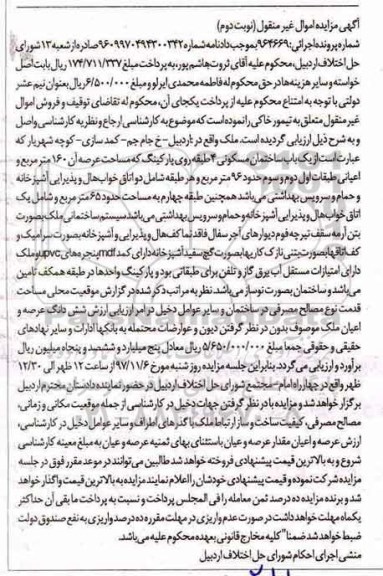 آگهی مزایده اموال غیر منقول (نوبت دوم)
شماره پرونده اجرائی: ۹۶۴۶۶۹ بموجب دادنامه شماره ۹۶۰۹۹۷۰۴۹۴۳۰۰۳۴۲ صادره از شعبه ۱۳ شورای
حل اختلاف اردبیل، محکوم علیه آقای ثروت هاشم پور، به پرداخت مبلغ ۱۷۴/۷۱۱/۳۳۷ ریال بابت اصل
خواسته و سایر هزینه ها در حق محکوم له فاطمه محمدی ایرلو و مبلغ ۶/۵۰۰/۰۰۰ ریال بعنوان نیم عشر
دولتی با توجه به امتناع محکوم علیه از پرداخت یکجای آن، محکوم له تقاضای توقیف و فروش اموال
غیر منقول متعلق به تیمور خاکی را نموده است که موضوع به کارشناسی ارجاع و نظریه کارشناسی واصل
و به شرح ذیل ارزیابی گردیده است. ملک واقع در: اردبیل - خ جام جم - کمد سازی - کوچه شهریار که
عبارت است از یک باب ساختمان مسکونی ۴ طبقه روی پارکینگ که مساحت عرصه آن ۱۶۰ متر مربع و
اعیانی طبقات اول دوم و سوم حدود ۹۶ متر مربع و هر طبقه شامل دو اتاق خواب هال و پذیرایی آشپزخانه
و حمام و سرویس بهداشتی می باشد همچنین طبقه چهارم به مساحت حدود ۶۵ متر مربع و شامل یک
اتاق خواب هال و پذیرایی آشپزخانه و حمام و سرویس بهداشتی می باشد سیستم ساختمانی ملک بصورت
بتن آرمه سقف تیرچه فوم دیوارهای آجر سفال فاقد نما کف هال و پذیرایی و آشپزخانه بصورت سرامیک و
کف اتاقها بصورت بتنی نازک کاریها بصورت گچ سفید آشپزخانه دارای کمد mdf پنجره های upvc و ملک
دارای امتیازات مستقل آب برق گاز و تلفن برای طبقاتی بود و پارکینگ واحدها در طبقه همکف تامین
می باشد و ساختمان بصورت نوساز می باشد. نظر به مراتب ذکر شده در گزارش موقعیت محلی مساحت
قدمت نوع مصالح مصرفی در ساختمان و سایر عوامل دخیل در امر ارزیابی ارزش شش دانگ عرصه و
اعیان ملک موصوف بدون در نظر گرفتن دیون و عوارضات محتمله به بانکها ادارات و سایر نهادهای
حقیقی و حقوقی جمعا مبلغ ۵/۶۵۰/۰۰۰/۰۰۰ ریال معادل پنج میلیارد و ششصد و پنجاه میلیون ریال
برآورد و ارزیابی می گردد. بنابراین جلسه مزایده روز شنبه مورخ ۹۷/۱۱/۶ از ساعت ۱۲ ظهر الی ۱۲/۳۰
ظهر واقع در چهار راه امام - مجتمع شورای حل اختلاف اردبیل در حضور نماینده دادستان محترم اردبیل
برگزار خواهد شد و مزایده با در نظر گرفتن جهات دخیل در کارشناسی از جمله موقعیت مکانی و زمانی،
مصالح مصرفی، کیفیت ساخت و ساز ارتباط ملک با گذرهای اطراف و سایر عوامل دخیل در کارشناسی،
ارزش عرصه و اعیان مقدار عرصه و عیان باستثنای بهای ثمنیه عرصه و عیان به مبلغ معینه کارشناسی
شروع و به بالاترین قیمت پیشنهادی فروخته خواهد شد طالبین می توانند در موعد مقرر فوق در جلسه
مزایده شرکت نموده و قیمت پیشنهادی خودشان را اعلام نمایند مزایده به بالاترین قیمت واگذار خواهد
شد و برنده مزایده ده درصد ثمن معامله را فی المجلس پرداخت و نسبت به پرداخت ما بقی آن حداکثر
یکماه مهلت خواهد داشت در صورت عدم واریزی در مهلت مقرره ده درصد واریزی به نفع صندوق دولت
ضبط خواهد شد ضمنا" کلیه مخارج قانونی بعهده محکوم علیه می باشد.
منشی اجرای احکام شورای حل اختلاف اردبیل